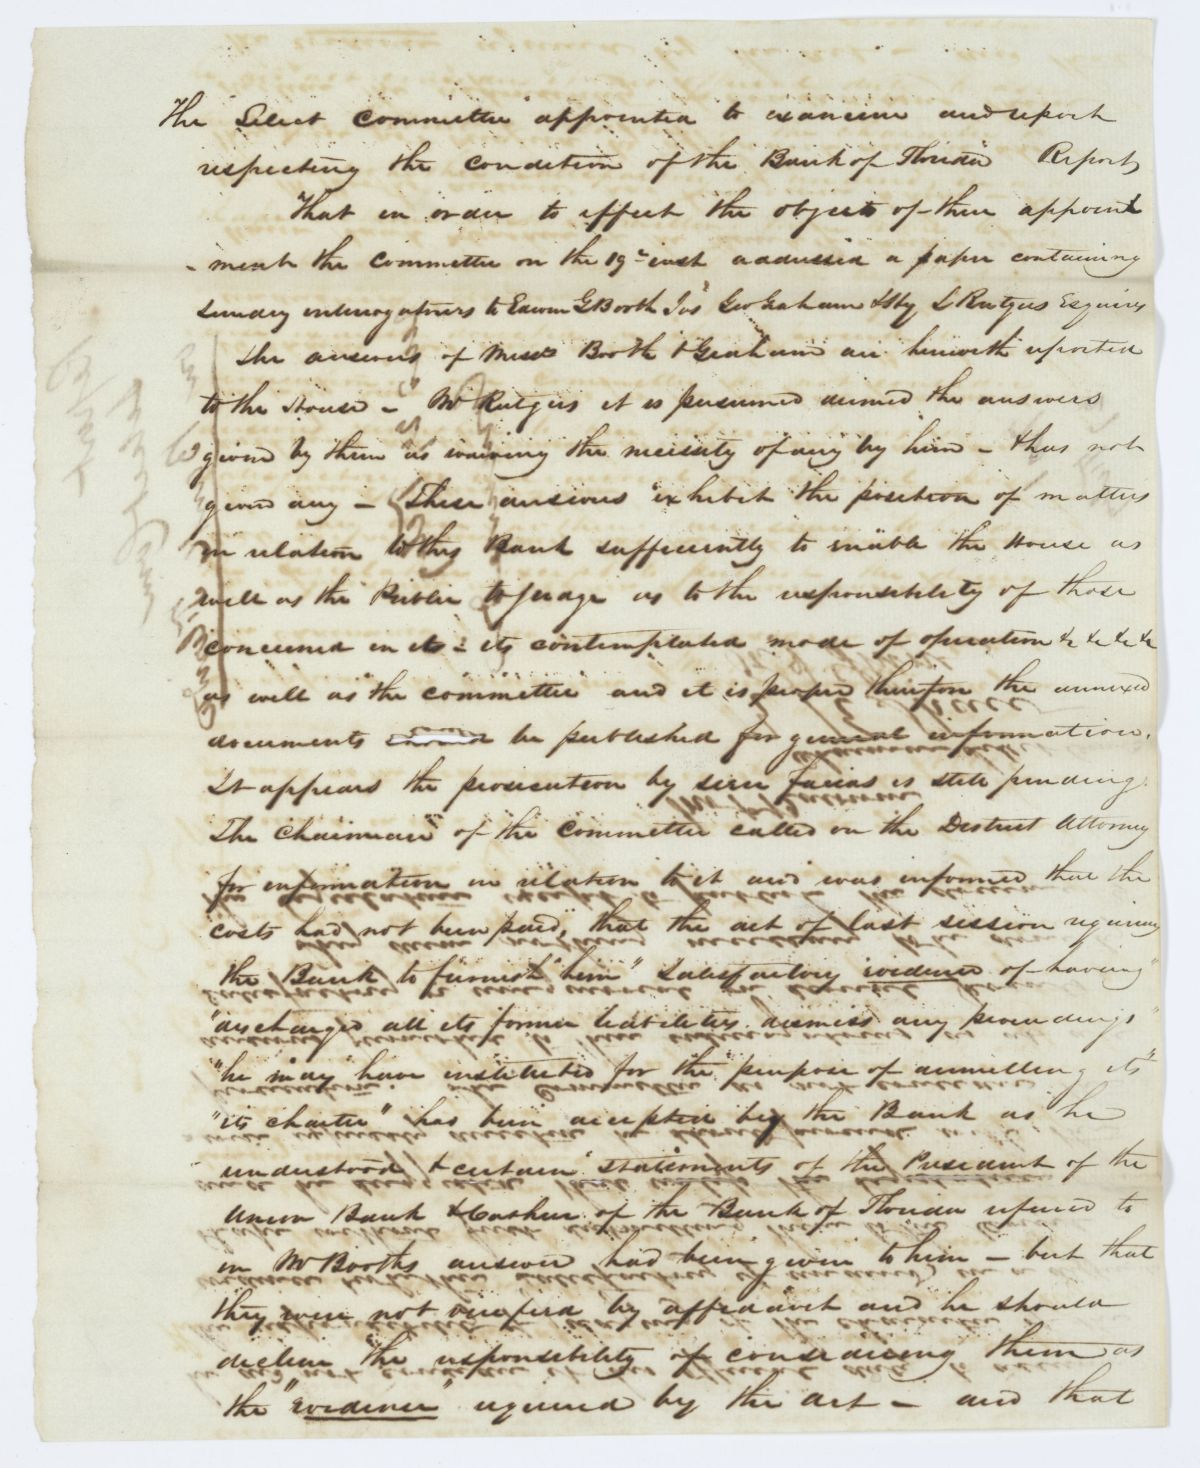 The Select Committee appointed to examine and report
respecting the condition of the Bank of Florida Report,
That in order to effect the objects of their appoint
-ment the Committee on the 19th inst addressed a paper containing
sundry interrogatories to Edwin G Booth Jos Geo Graham & Hy L Rutgers Esquires
The answers of Messrs Booth & Graham are herewith reported
to the House - Mr Rutgers it is presumed deemed the answers
given by them as waiving the necessity of any by him - & has not
given any - These answers exhibit the position of matters
in relation to this Bank sufficiently to enable the House as
well as the Public to judge as to the responsibility of those
concerned in it & its contemplated mode of operation &c &c &c &c
as well as the committee and it is proper therefore the annexed
documents be published for general information.
It appears the prosecution by scire facias is still pending
The Chairman of the Committee called on the District Attorney
for information in relation to it and was informed that the
costs had not been paid, that the act of last session requiring
the Bank to furnish "him" "satisfactory evidence of having"
"discharged all its former liabilities dismiss any proceedings"
"he may have instituted for the purpose of annulling its"
"its charter" has been accepted by the Bank as he
understood & certain statements of the President of the
Union Bank & Cashier of the Bank of Florida refered to
in Mr Booths answer had been given to him - but that
they were not verified by affidavit and he should
decline the responsibility of considering them as
the "evidence" required by the act - and that